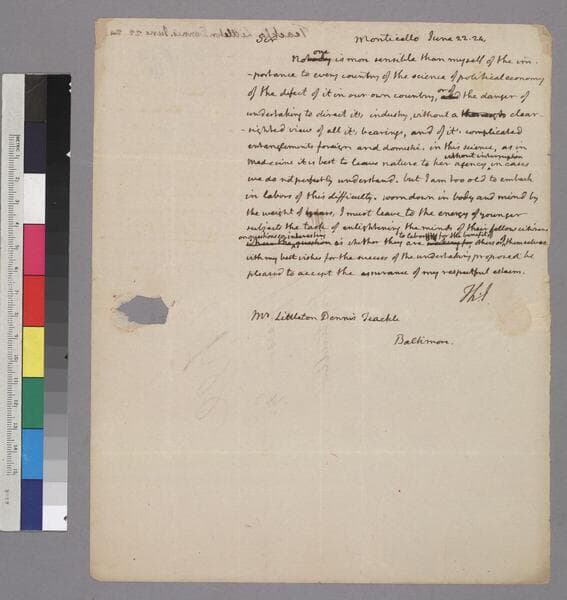 Sir Monticello June 22. 24.
one
Nobody is more sensible than myself of the im-
-portance to every country of the science of political economy
of the defect of it in our own country, or of the danger of
undertaking to direct it's industry, without a thorough clear-
-sighted view of all it's bearings, and of it's complicated
entanglements foreign and domestic. in this science, as in
without interruption
medecine it is best to leave nature to her agency, in cases
we do not perfectly understand. but I am too old to embark
in labors of this difficulty. worn down in body and mind by
the weight of years, I must leave to the energy of younger
subjects the task of enlightening the minds of their fellow citizens
on questions so interesting to labor for the benefit of
the question is whether they are working for others or themselves
with my best wishes for the success of the undertaking proposed be
pleased to accept the assurance of my respectful esteem.
Th:J
Mr. Littleton Dennis Teackle
Baltimore.